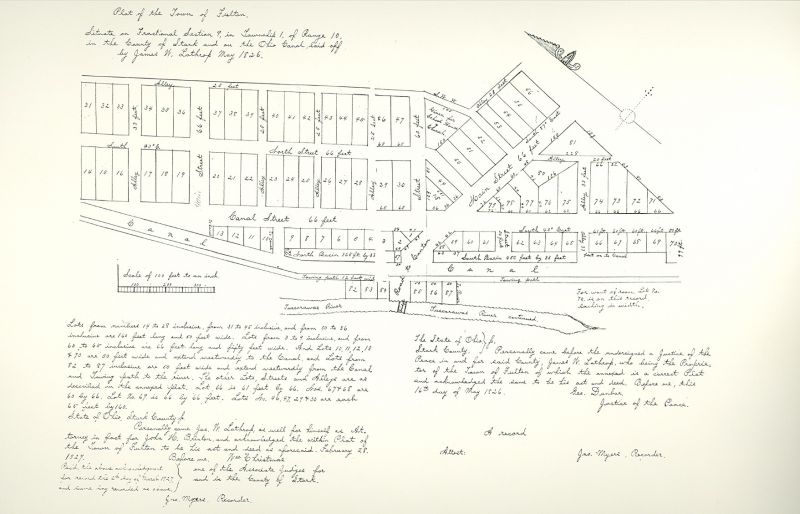 Plat of the Town of Fulton.
Situate on Fractional Section 9, in Township 1, of Range 10,
in the County of Stark and on the Ohio Canal, laid off
by James W. Lathrop May 1826.
Alley 25 feet
31 32 33
33 feet
34 35 36
66 feet
37 38 39
25 feet
40 41 42
25 feet
43 44 45
25 feet
46 47
60 feet
Alley 25 feet
50 51 52 53 54 55 56
South
North Street 66 feet
14 15 16
Alley
17 18 19
Street
20 21 22
Alley
23 24 25
Alley
26 27 28
Alley
29 30
Street
Main Street 66 feet
81
228
Alley
25 feet
75 77 76 75
Alley 33 feet
74 73 72 71
Canal Street 66 feet
Canal
13 12 11 10
9 8 7 6 5 4 3
2
North Basin
Road to Canton
61
South 45° East
62 63 64 65
66 67 68 69 70
South Basin 400 feet by 85 feet
Canal
Towing path 12 feet wide
Towing path
82 83 84
85 86 87
Scale of 200 feet to an inch
Tuscarawas River
Tuscarawas River continued
For want of room Lot No.
70 is on this record
Lots from numbers 14 to 28 inclusive, from 31 to 45 inclusive, and from 50 to 56
inclusive are 140 feet long and 50 feet wide. Lots from 3 to 9 inclusive, and from
60 to 65 inclusive are 66 feet long and fifty feet wide. And Lots 10, 11, 12, 13
& 70 are 50 feet wide and extend westwardly to the Canal, and Lots from
82 to 87 inclusive are 50 feet wide and extend westwardly from the Canal
and Towing path to the river. The other Lots, Streets and Alleys are as
described on the annexed plat. Lot 66 is 61 feet by 66. Nos. 67 & 68 are
60 by 66. Lot No 69 is 66 by 66 feet. Lots No. 46, 47, 29 & 30 are each
65 feet by 140.
State of Ohio, Stark County ss
Personally came Jas. W. Lathrop, as well for himself as At-
torney in fact for John W. and acknowledged the within Plat of
the Town of Fulton to be his act and deed as aforesaid. February 28.
1827. Before me, Wm Christmas
one of the Associate Judges for
and in the County of Stark.
for record the 6th day of March 1827,
and same day recorded as above.
Jno. Myers, Recorder
The State of Ohio ss.
Stark County. Personally came before the undersigned a Justice of the
Peace in and for said County James W. Lathrop, who being the Proprie-
tor of the Town of Fulton of which the annexed is a correct Plat
and acknowledged the same to be his act and deed. Before me, this
16th day of May 1826. Geo. Dunbar,
Justice of the Peace.
A record
Attest: Jno. Myers, Recorder.